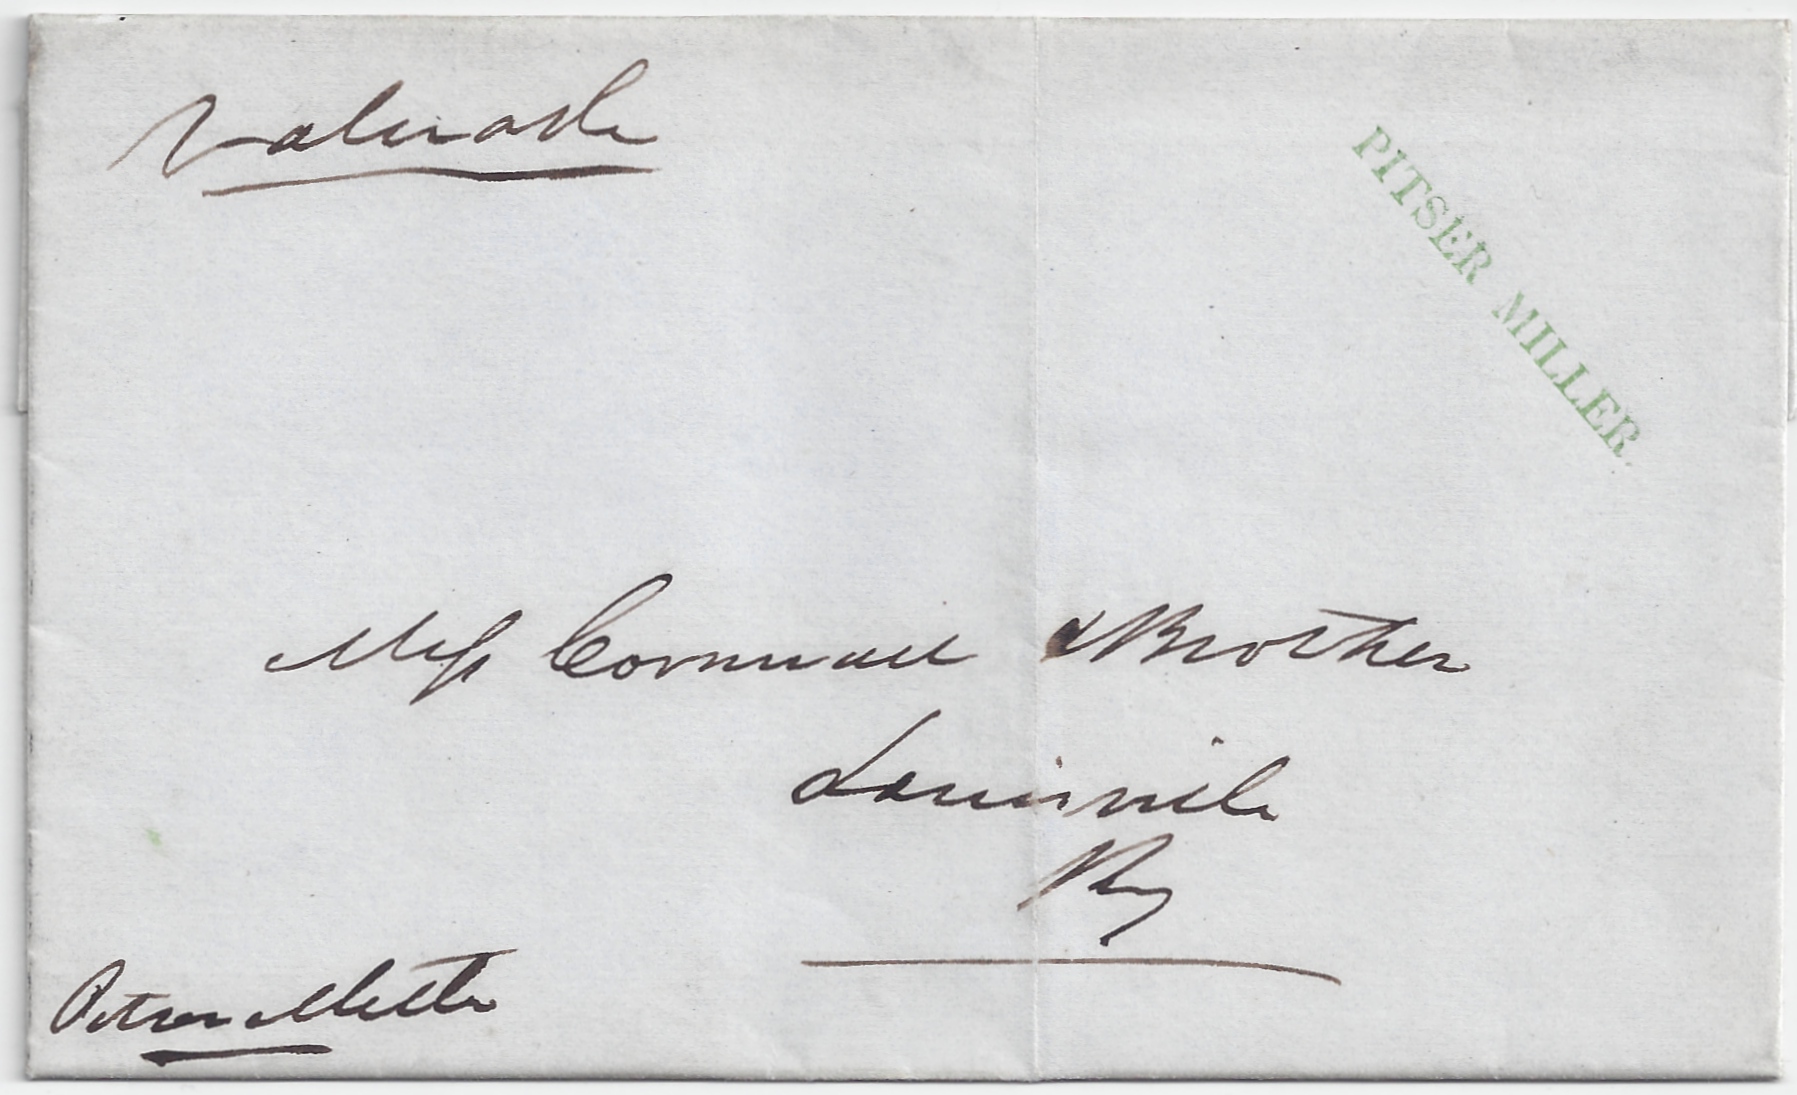 Valuable
PITSER MILLER.
Mess Cornwall & Brother
Louisville
Ky
Pitser Miller